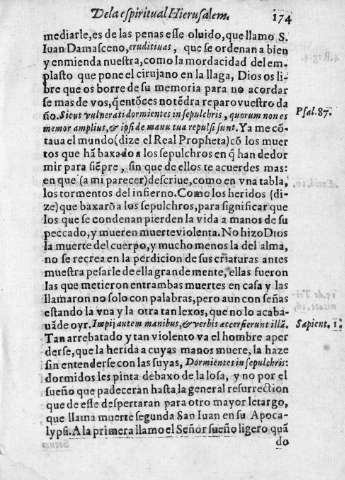 De la espiritual Hierusalem. 174
mediarle, es de las penas esse oluido, que llamo S.
Iuan Damasceno, eruditiuas, que se ordenan a bien
y enmienda nuestra, como la mordacidad del em-
plasto que pone el cirujano en la llaga, Dios os li-
bre que os borre de su memoria para no acordar
se mas de vos, q̃ entõces no tẽdra reparo vuestro da
ño. Sicut vulnerati dormientes in sepulchris, quorum non es
memor amplius, & ipsi de manu tua repulsi sunt. Ya me cõ
taua el mundo (dize el Real Propheta) cõ los muer
tos que hã baxado a los sepulchros en q̃ han de dor
mir para siẽpre, sin que de ellos te acuerdes mas:
en que (a mi parecer) descriue, como en vna tabla,
los tormentos del infierno. Como los heridos (di-
ze) que baxarõ a los sepulchros, para significar que
los que se condenan pierden la vida a manos de su
peccado, y mueren muerte violenta. No hizo Dios
la muerte del cuerpo, y mucho menos la del alma,
no se recrea en la perdicion de sus criaturas antes
muestra pesarle de ella grandemente, ellas fueron
las que metieron entrambas muertes en casa y las
llamaron no solo con palabras, pero aun con señas
estando la vna y la otra tan lexos, que no lo acaba-
uã de oyr. Impij autem manibus, & verbis accersierunt illã.
Tan arrebatado y tan violento va el hombre a per
derse, que la herida a cuyas manos muere, la haze
sin entenderse con las suyas, Dormientes in sepulchris:
dormidos les pinta debaxo de la losa, y no por el
sueño que padeceran hasta la general resurrection
que de este despertaran para otro mayor letargo,
que llama muerte segunda San Iuan en su Apoca-
lypsi. A la primera llamo el Señor sueño ligero quã
do
Psal. 87.
Sapient. 1.